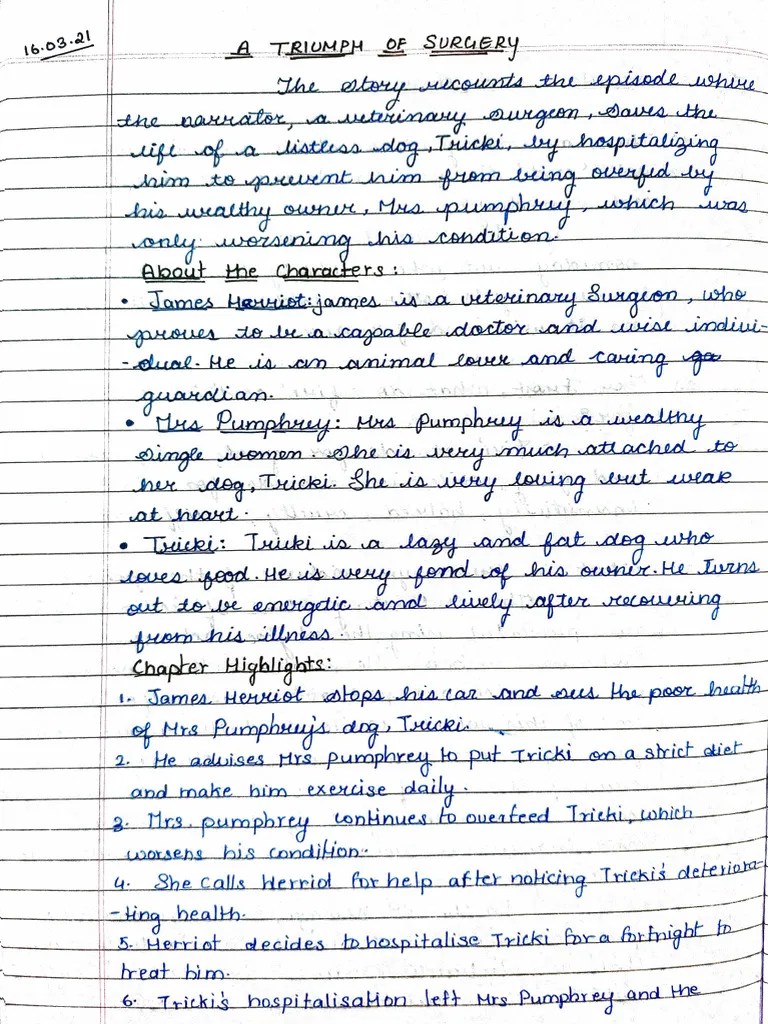 16.03.21
A TRIUMPH OF SURGERY
The story recounts the episode where
the narrator, a veterinary surgeon, saves the
life of a listless dog, Tricki, by hospitalizing
him to prevent him from being overfed by
his wealthy owner, Mrs pumphrey, which was
only worsening his condition.
About the Characters:
• James Herriot: james is a veterinary Surgeon, who
proves to be a capable doctor and wise indivi-
-dual. He is an animal lover and caring ga
guardian.
• Mrs Pumphrey: Mrs Pumphrey is a wealthy
single women. She is very much attached to
her dog, Tricki. She is very loving but weak
at heart.
• Tricki: Tricki is a lazy and fat dog who
loves food. He is very fond of his owner. He turns
out to be energetic and lively after recovering
from his illness.
Chapter Highlights:
1. James Herriot stops his car and sees the poor health
of Mrs Pumphrey's dog, Tricki.
2. He advises Mrs pumphrey to put Tricki on a strict diet
and make him exercise daily.
3. Mrs. pumphrey continues to overfeed Tricki, which
worsens his condition.
4. She calls Herriot for help after noticing Tricki's deteriora-
-ting health.
5. Herriot decides to hospitalise Tricki for a fortnight to
treat him.
6. Tricki's hospitalisation left Mrs Pumphrey and the